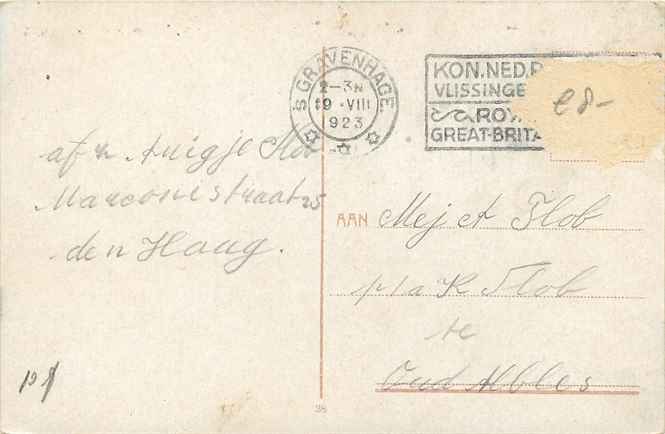 'S GRAVENHAGE.
2-3N
19.VIII
1923
KON.NED.P
VLISSINGE
ROY
GREAT-BRITA
e8-
af Antigje Slob
Marconistraat 25
den Haag.
AAN Mej A Slob
p/a K Slob
te
Oud Alblas
38